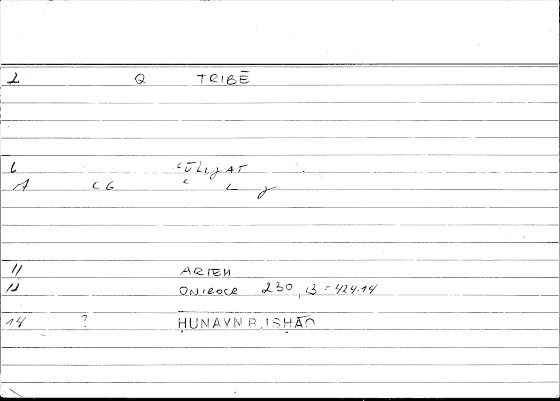 2 Q TRIBĒ
6 ʿŪLIYAT
A CG ʿ L Y
11 ARTEM
12 ONIROCR 230,13 = 424.14
14 ? ḤUNAYN B. ISḤĀQ